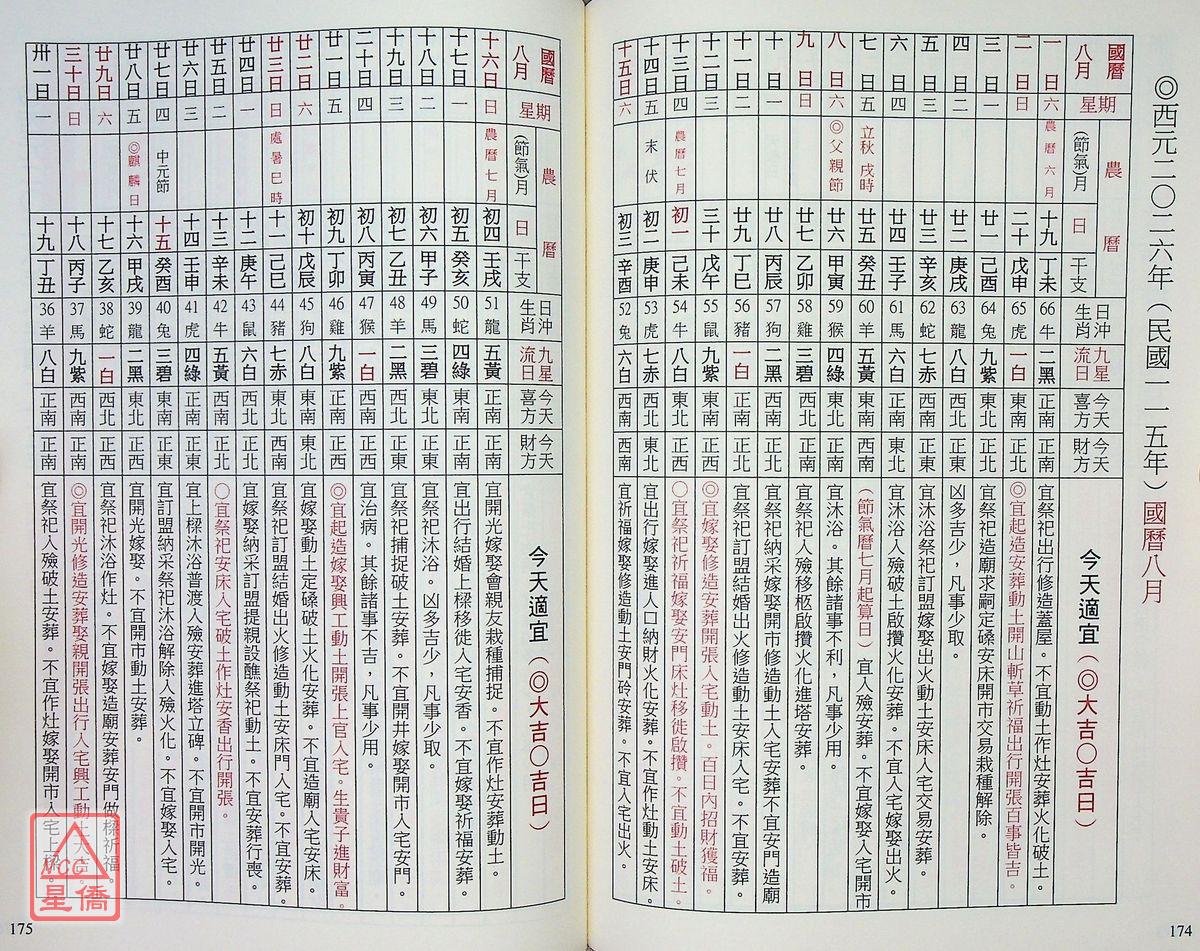 ◎西元二〇二六年（民國一一五年）國曆八月
國曆 八月 星期 農曆 (節氣)月 日 干支 日沖生肖 九星流日 今天喜方 今天財方 今天適宜（◎大吉〇吉日）
一日 六 農曆六月 十九 丁未 66牛 二黑 正南 宜祭祀出行修造蓋屋。不宜動土作灶安葬火化破土。
二日 日 二十 戊申 65虎 一白 東南 ◎宜起造安葬動土開山斬草祈福出行開張百事皆吉。
三日 一 廿一 己酉 64兔 九紫 東北 宜祭祀造廟求嗣定磉安床開市交易栽種解除。
四日 二 廿二 庚戌 63龍 八白 西北 凶多吉少，凡事少取。
五日 三 廿三 辛亥 62蛇 七赤 西南 宜沐浴祭祀訂盟嫁娶出火動土安床入宅交易安葬。
六日 四 廿四 壬子 61馬 六白 正南 宜沐浴入殮破土啟攢火化安葬。不宜入宅嫁娶出火。
七日 五 立秋 戌時 廿五 癸丑 60羊 五黃 東南 （節氣曆七月起算日）宜入殮安葬。不宜嫁娶入宅開市
八日 六 ◎父親節 廿六 甲寅 59猴 四綠 東北 宜沐浴。其餘諸事不利，凡事少用。
九日 日 廿七 乙卯 58雞 三碧 西北 宜祭祀入殮移柩啟攢火化進塔安葬。
十日 一 廿八 丙辰 57狗 二黑 西南 宜祭祀納采嫁娶開市修造動土入宅安葬不宜安門造廟
十一日 二 廿九 丁巳 56豬 一白 正南 宜祭祀訂盟結婚出火修造動土安床入宅。不宜安葬。
十二日 三 三十 戊午 55鼠 九紫 東南 ◎宜嫁娶修造安葬開張入宅動土。百日內招財獲福。
十三日 四 農曆七月 初一 己未 54牛 八白 東北 〇宜祭祀祈福嫁娶安門床灶移徙啟攢。不宜動土破土。
十四日 五 末伏 初二 庚申 53虎 七赤 西北 宜出行嫁娶進人口納財火化安葬。不宜作灶動土安床。
十五日 六 初三 辛酉 52兔 六白 西南 宜祈福嫁娶修造動土安門砱安葬。不宜入宅出火。
174
國曆 八月 星期 農曆 (節氣)月 日 干支 日沖生肖 九星流日 今天喜方 今天財方 今天適宜（◎大吉〇吉日）
十六日 日 農曆七月 初四 壬戌 51龍 五黃 正南 宜開光嫁娶會親友栽種捕捉。不宜作灶安葬動土。
十七日 一 初五 癸亥 50蛇 四綠 東南 宜出行結婚上樑移徙入宅安香。不宜嫁娶祈福安葬。
十八日 二 初六 甲子 49馬 三碧 東北 宜祭祀沐浴。凶多吉少，凡事少取。
十九日 三 初七 乙丑 48羊 二黑 西北 宜祭祀捕捉破土安葬。不宜開井嫁娶開市入宅安門。
二十日 四 初八 丙寅 47猴 一白 西南 宜治病。其餘諸事不吉，凡事少用。
廿一日 五 初九 丁卯 46雞 九紫 正南 ◎宜起造嫁娶興工動土開張上官入宅。生貴子進財富。
廿二日 六 初十 戊辰 45狗 八白 東南 宜嫁娶動土定磉破土火化安葬。不宜造廟入宅安床。
廿三日 日 處暑 巳時 十一 己巳 44豬 七赤 東北 宜祭祀訂盟結婚出火修造動土安床門入宅。不宜安葬。
廿四日 一 十二 庚午 43鼠 六白 西北 宜嫁娶納采訂盟提親設醮祭祀動土。不宜安葬行喪。
廿五日 二 十三 辛未 42牛 五黃 西南 〇宜祭祀安床入宅破土作灶安香出行開張。
廿六日 三 十四 壬申 41虎 四綠 正南 宜上樑沐浴普渡入殮安葬進塔立碑。不宜開市開光。
廿七日 四 中元節 十五 癸酉 40兔 三碧 東南 宜訂盟納采祭祀沐浴解除入殮火化。不宜嫁娶入宅。
廿八日 五 ◎麒麟日 十六 甲戌 39龍 二黑 東北 宜開光嫁娶。不宜開市動土安葬。
廿九日 六 十七 乙亥 38蛇 一白 西北 宜祭祀沐浴作灶。不宜嫁娶造廟安葬安門做樑祈福。
三十日 日 十八 丙子 37馬 九紫 西南 ◎宜開光修造安葬娶親開張出行入宅興工動土大吉。
卅一日 一 十九 丁丑 36羊 八白 正南 宜祭祀入殮破土安葬。不宜作灶嫁娶開市入宅上樑。
175
VCC
星僑